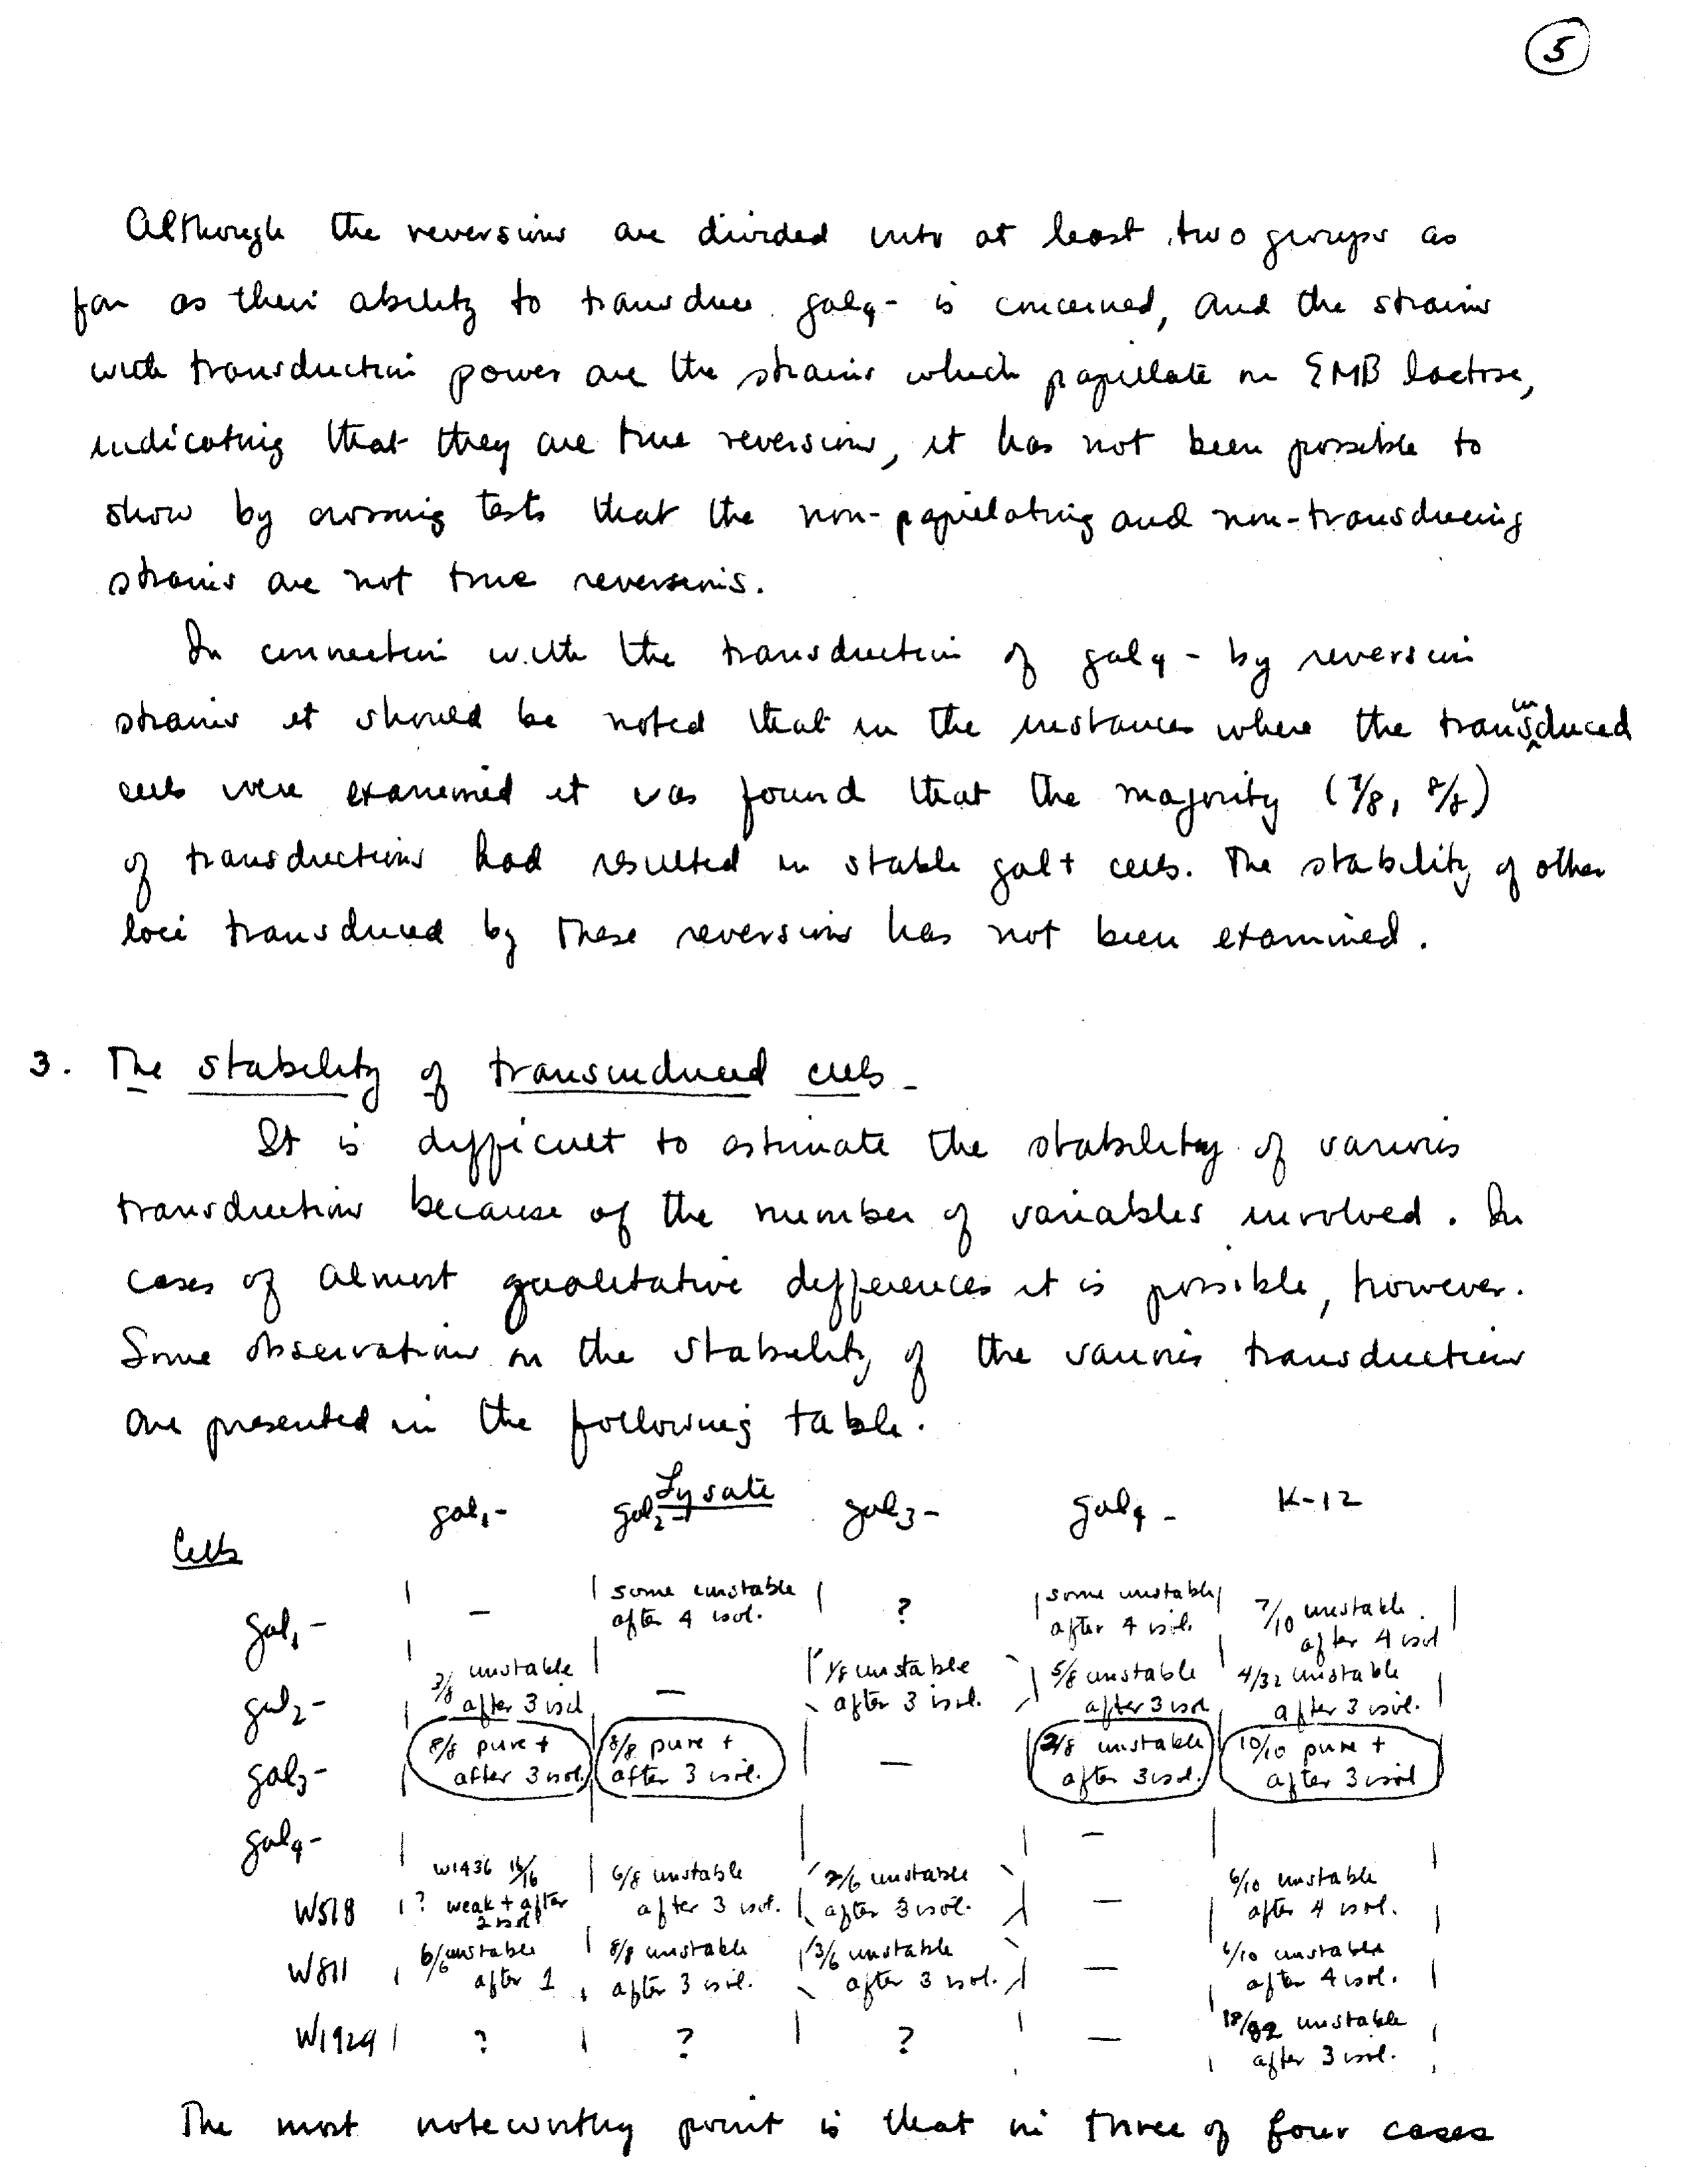 5
Although the reversions are divided into at least two groups as
far as their ability to transduce gal4- is concerned, and the strains
with transduction power are the strains which papillate on EMB lactose,
indicating that they are true reversions, it has not been possible to
show by crossing tests that the non-papillating and non-transducing
strains are not true reversions.
In connection with the transduction of gal4- by reversion
strains it should be noted that in the instances where the transinduced
cells were examined it was found that the majority (7/8, 8/8)
of transductions had resulted in stable gal+ cells. The stability of other
loci transduced by these reversions has not been examined.
3. The stability of transinduced cells-
It is difficult to estimate the stability of various
transductions because of the number of variables involved. In
cases of almost qualitative differences it is possible, however.
Some observations on the stability of the various transductions
are presented in the following table.
Lysate
gal1- gal2- gal3- gal4- K-12
Cells
gal1- - some unstable after 4 isol. ? some unstable after 4 isol. 7/10 unstable after 4 isol
gal2- 3/8 unstable after 3 isol - 1/8 unstable after 3 isol. 5/8 unstable after 3 isol 4/32 unstable after 3 isol.
gal3- 8/8 pure + after 3 isol. 8/8 pure + after 3 isol. - 2/8 unstable after 3 isol. 10/10 pure + after 3 isol
gal4- -
W518 W1436 16/16 ? weak + after 2 isol 6/8 unstable after 3 isol. 2/6 unstable after 3 isol. - 6/10 unstable after 4 isol.
W811 6/6 unstable after 1 8/8 unstable after 3 isol. 3/6 unstable after 3 isol. - 6/10 unstable after 4 isol.
W1924 ? ? ? - 18/32 unstable after 3 isol.
The most noteworthy point is that in three of four cases